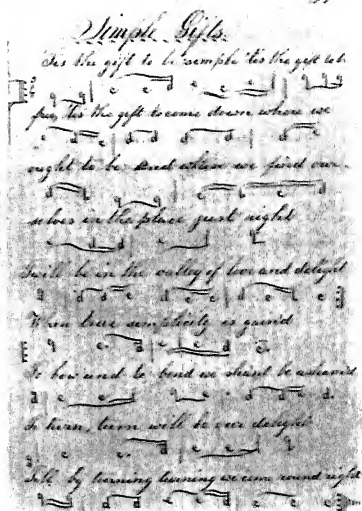 Simple Gifts.
Tis the gift to be simple 'tis the gift to be
free, tis the gift to come down where we
ought to be And when we find our-
selves in the place just right
Twill be in the valley of love and delight
When true simplicity is gaind
To bow and to bend we shant be asham'd
To turn, turn will be our delight
Till by turning turning we come round right